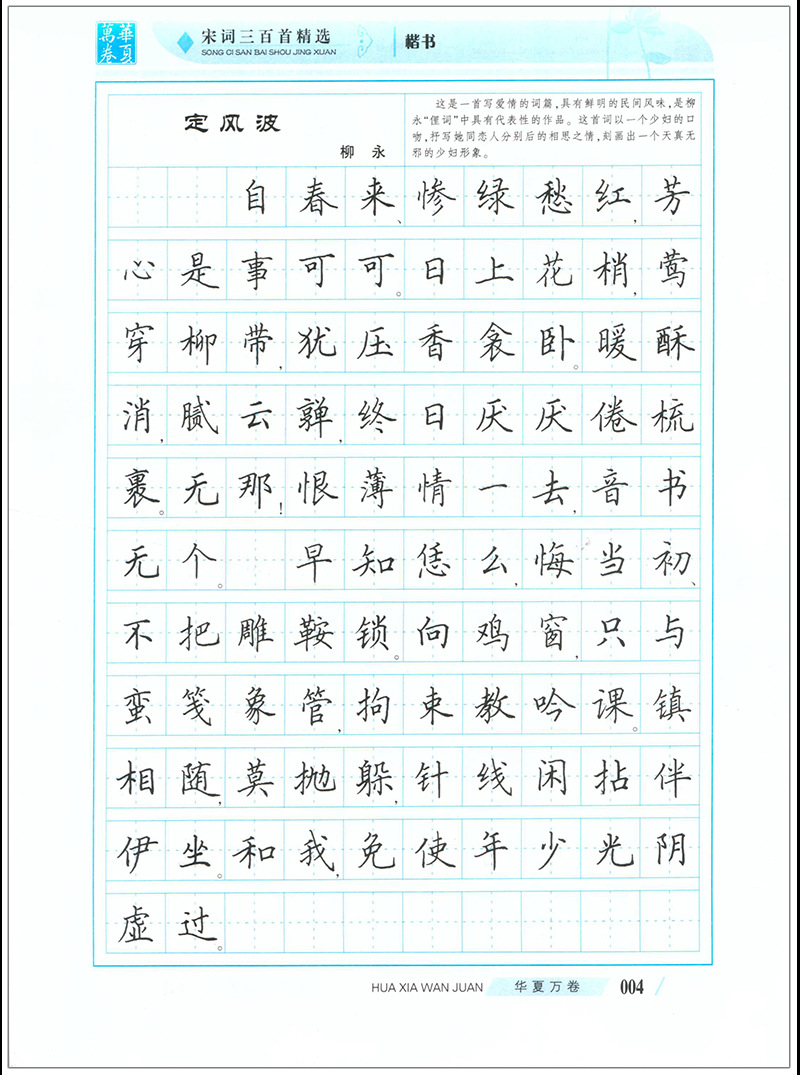 華夏萬卷
宋词三百首精选
SONG CI SAN BAI SHOU JING XUAN
楷书
定风波
柳 永
这是一首写爱情的词篇，具有鲜明的民间风味，是柳
永“俚词”中具有代表性的作品。这首词以一个少妇的口
吻，抒写她同恋人分别后的相思之情，刻画出一个天真无
邪的少妇形象。
自春来、惨绿愁红，芳
心是事可可。日上花梢，莺
穿柳带，犹压香衾卧。暖酥
消，腻云亸，终日厌厌倦梳
裹。无那！恨薄情一去，音书
无个。 早知恁么，悔当初、
不把雕鞍锁。向鸡窗，只与
蛮笺象管，拘束教吟课。镇
相随，莫抛躲，针线闲拈伴
伊坐。和我，免使年少光阴
虚过。
HUA XIA WAN JUAN 华夏万卷 004